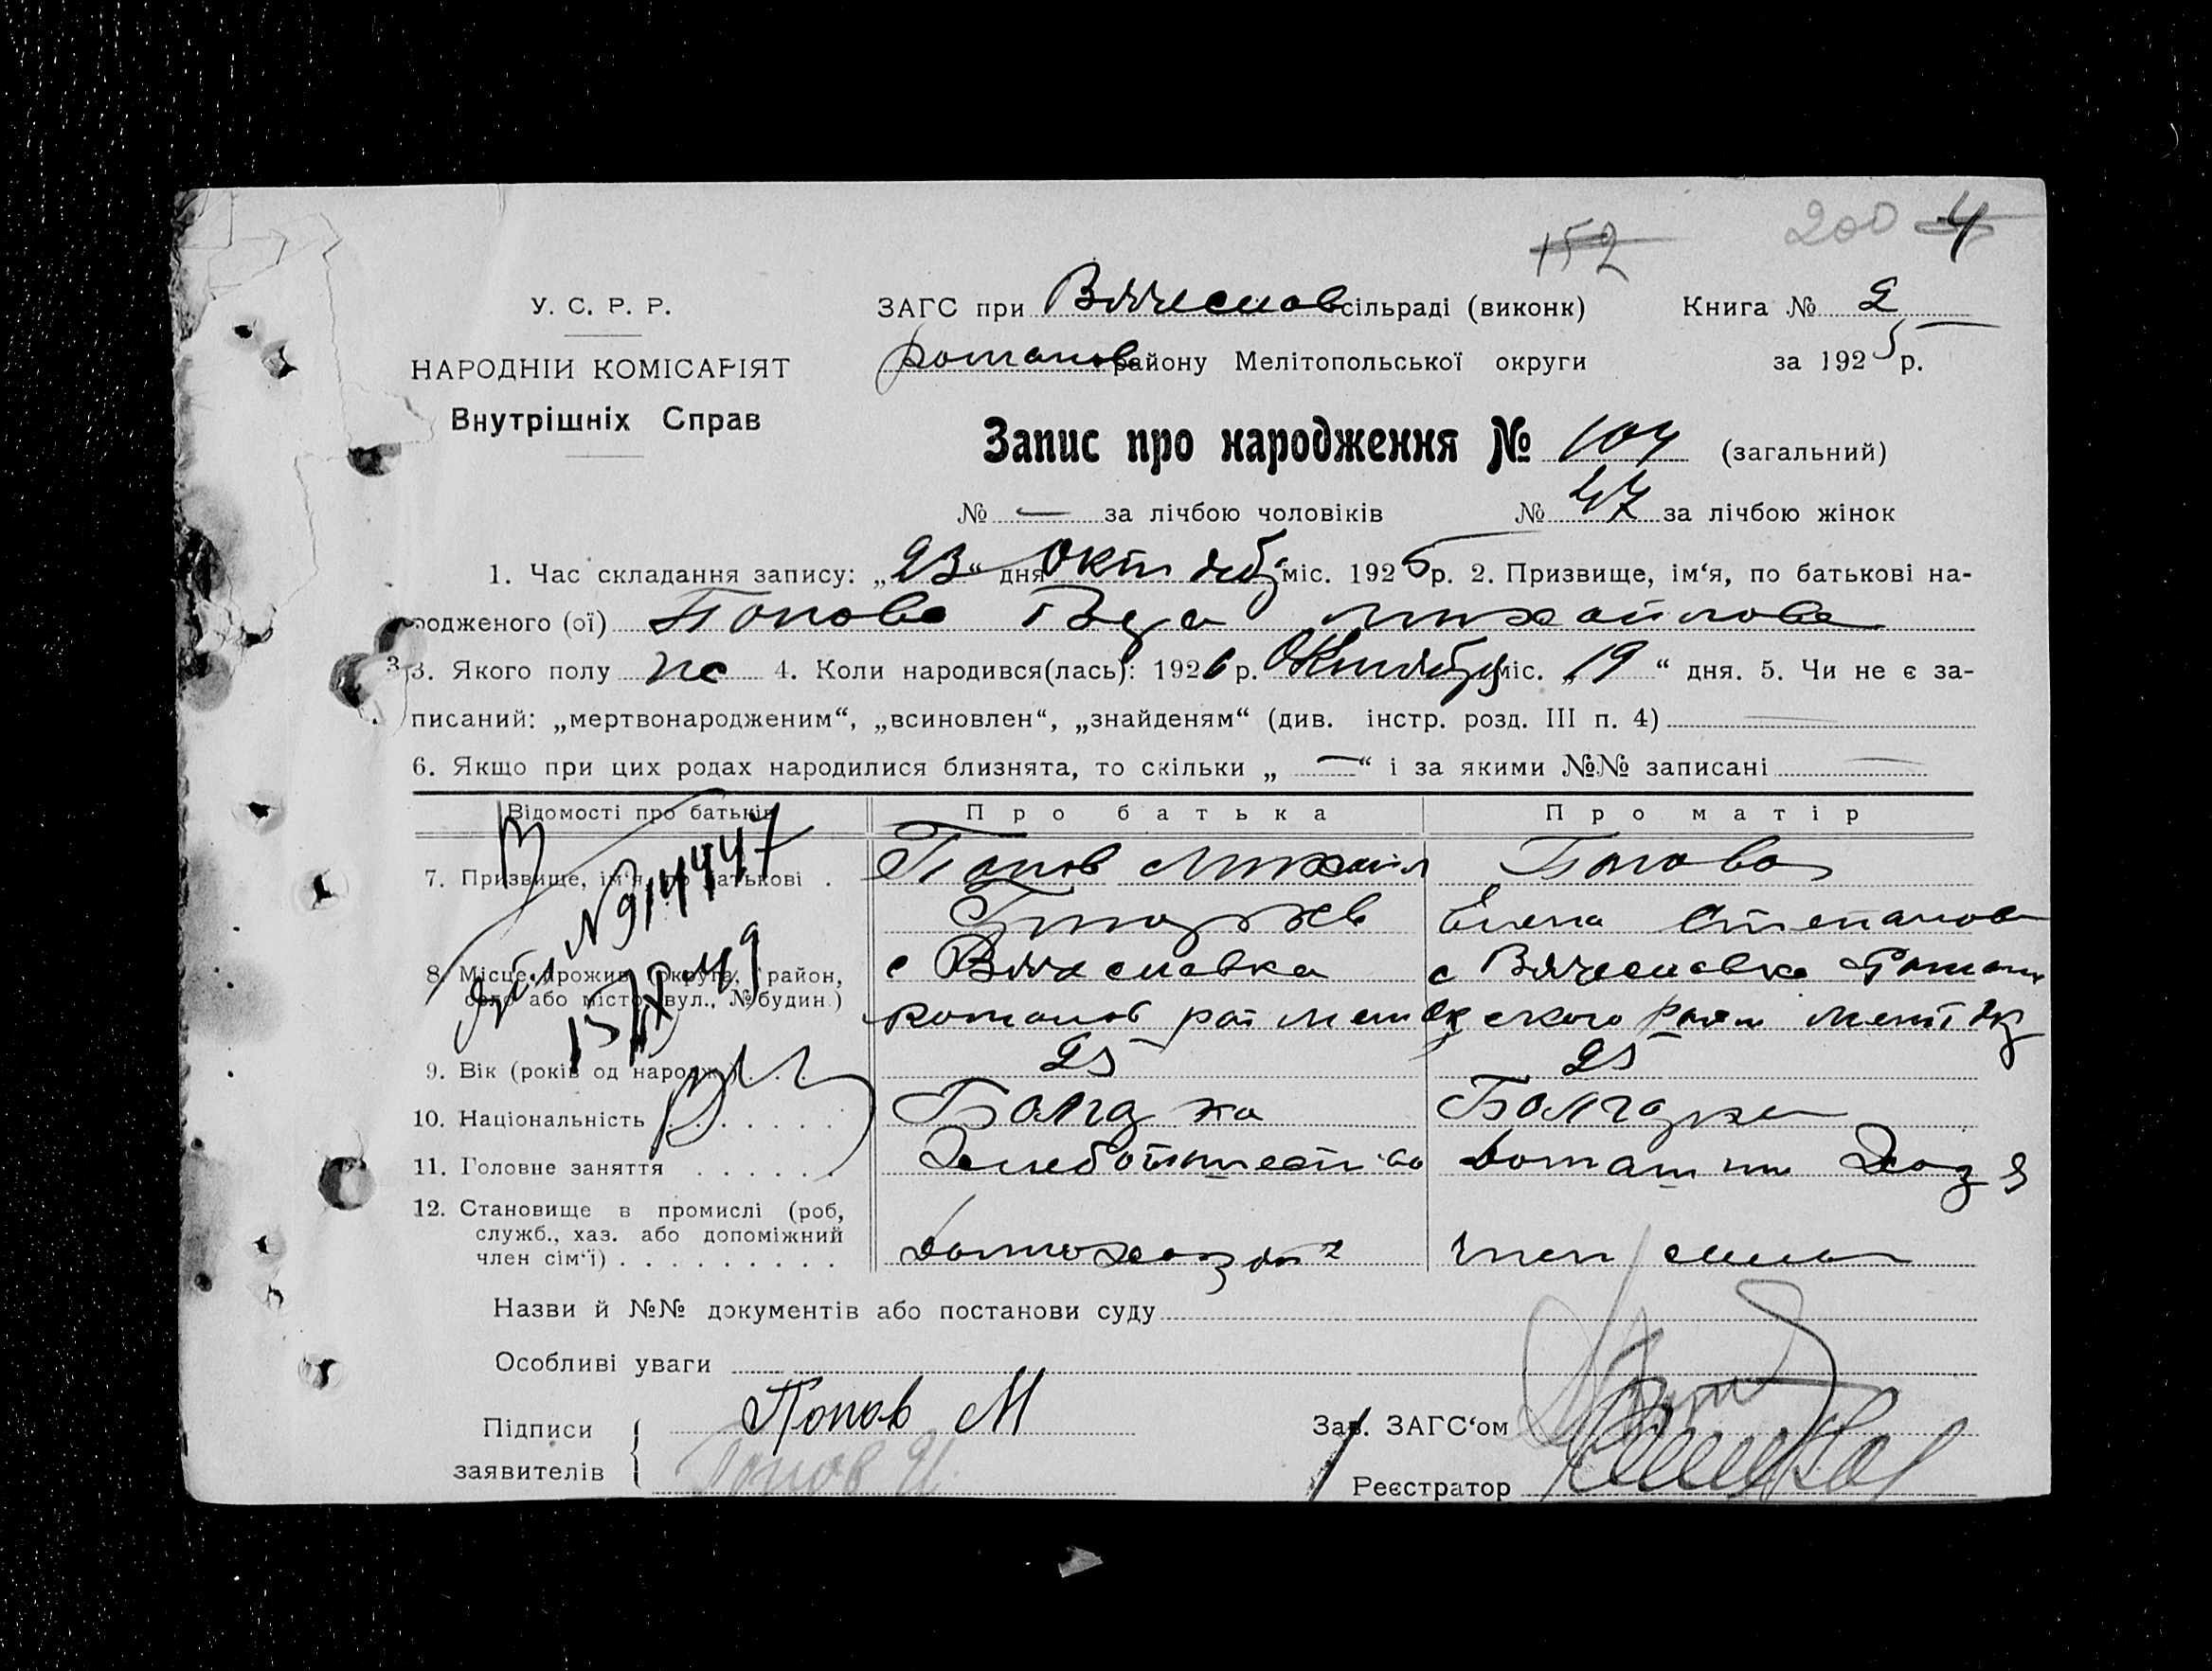 152 200 4
У. С. Р. Р.
НАРОДНІЙ КОМІСАРІЯТ
Внутрішніх Справ
ЗАГС при Вячеслов сільраді (виконк)
Романов району Мелітопольської округи
Книга № 2
за 1925 р.
Запис про народження № 104 (загальний)
№ — за лічбою чоловіків № 47 за лічбою жінок
1. Час складання запису: „23“ дня Октября міс. 1925 р. 2. Призвище, ім‘я, по батькові на-
родженого (ої) Попова Михайлова
3. Якого полу 4. Коли народився(лась): 192 р. Октября міс. „19“ дня. 5. Чи не є за-
писаний: „мертвонародженим“, „всиновлен“, „знайденям“ (див. інстр. розд. III п. 4) —
6. Якщо при цих родах народилися близнята, то скільки „ — “ і за якими №№ записані —
Відомості про батьків Про батька Про матір
7. Призвище, ім‘я, по батькові . Попов Михаил Попова
Елена Степанов
8. Місце прожив. (округа, район, с Вячеславка с Вячеславка Роман
село або місто, вул., № будин.) Романов рай Мелит ок ского район Мелит ок
№ 914447
9. Вік (років од народж.) . . . 25 25
10. Національність . . . . . . . Болгарка
11. Головне заняття . . . . . . Домашн Хоз
12. Становище в промислі (роб,
служб., хаз. або допоміжний
член сім‘ї) . . . . . . . . . Домохозяин член семьи
Назви й №№ документів або постанови суду
Особливі уваги
Підписи Попов М Зав. ЗАГС‘ом
заявителів Попов Реєстратор